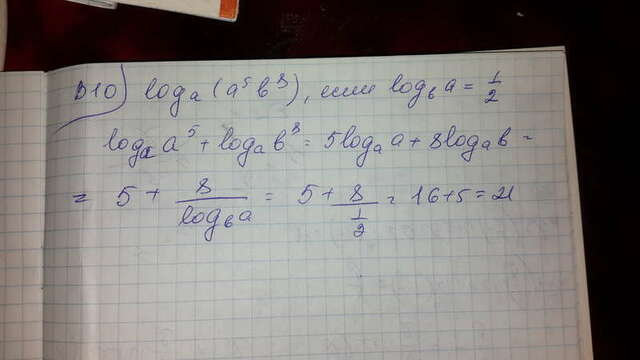 В10) logₐ(a⁵b⁸), если log_b a = 1/2
logₐ a⁵ + logₐ b⁸ = 5logₐ a + 8logₐ b =
= 5 + 8/log_b a = 5 + 8/(1/2) = 16+5 = 21